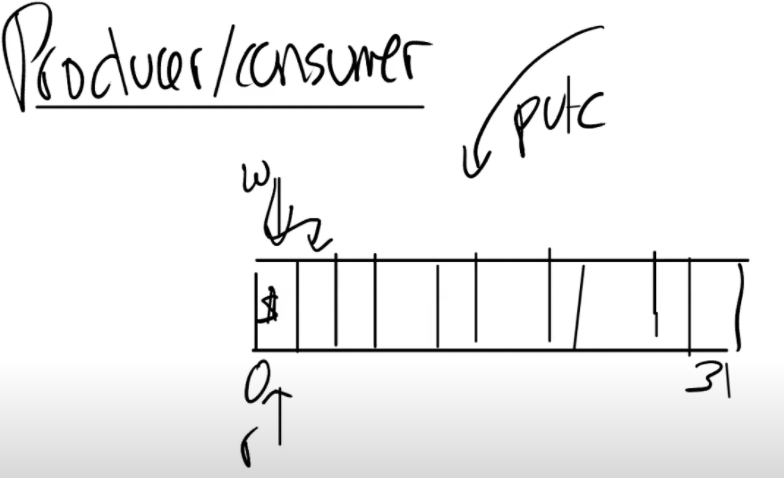 Producer/consumer
putc
w
$
0 31
r